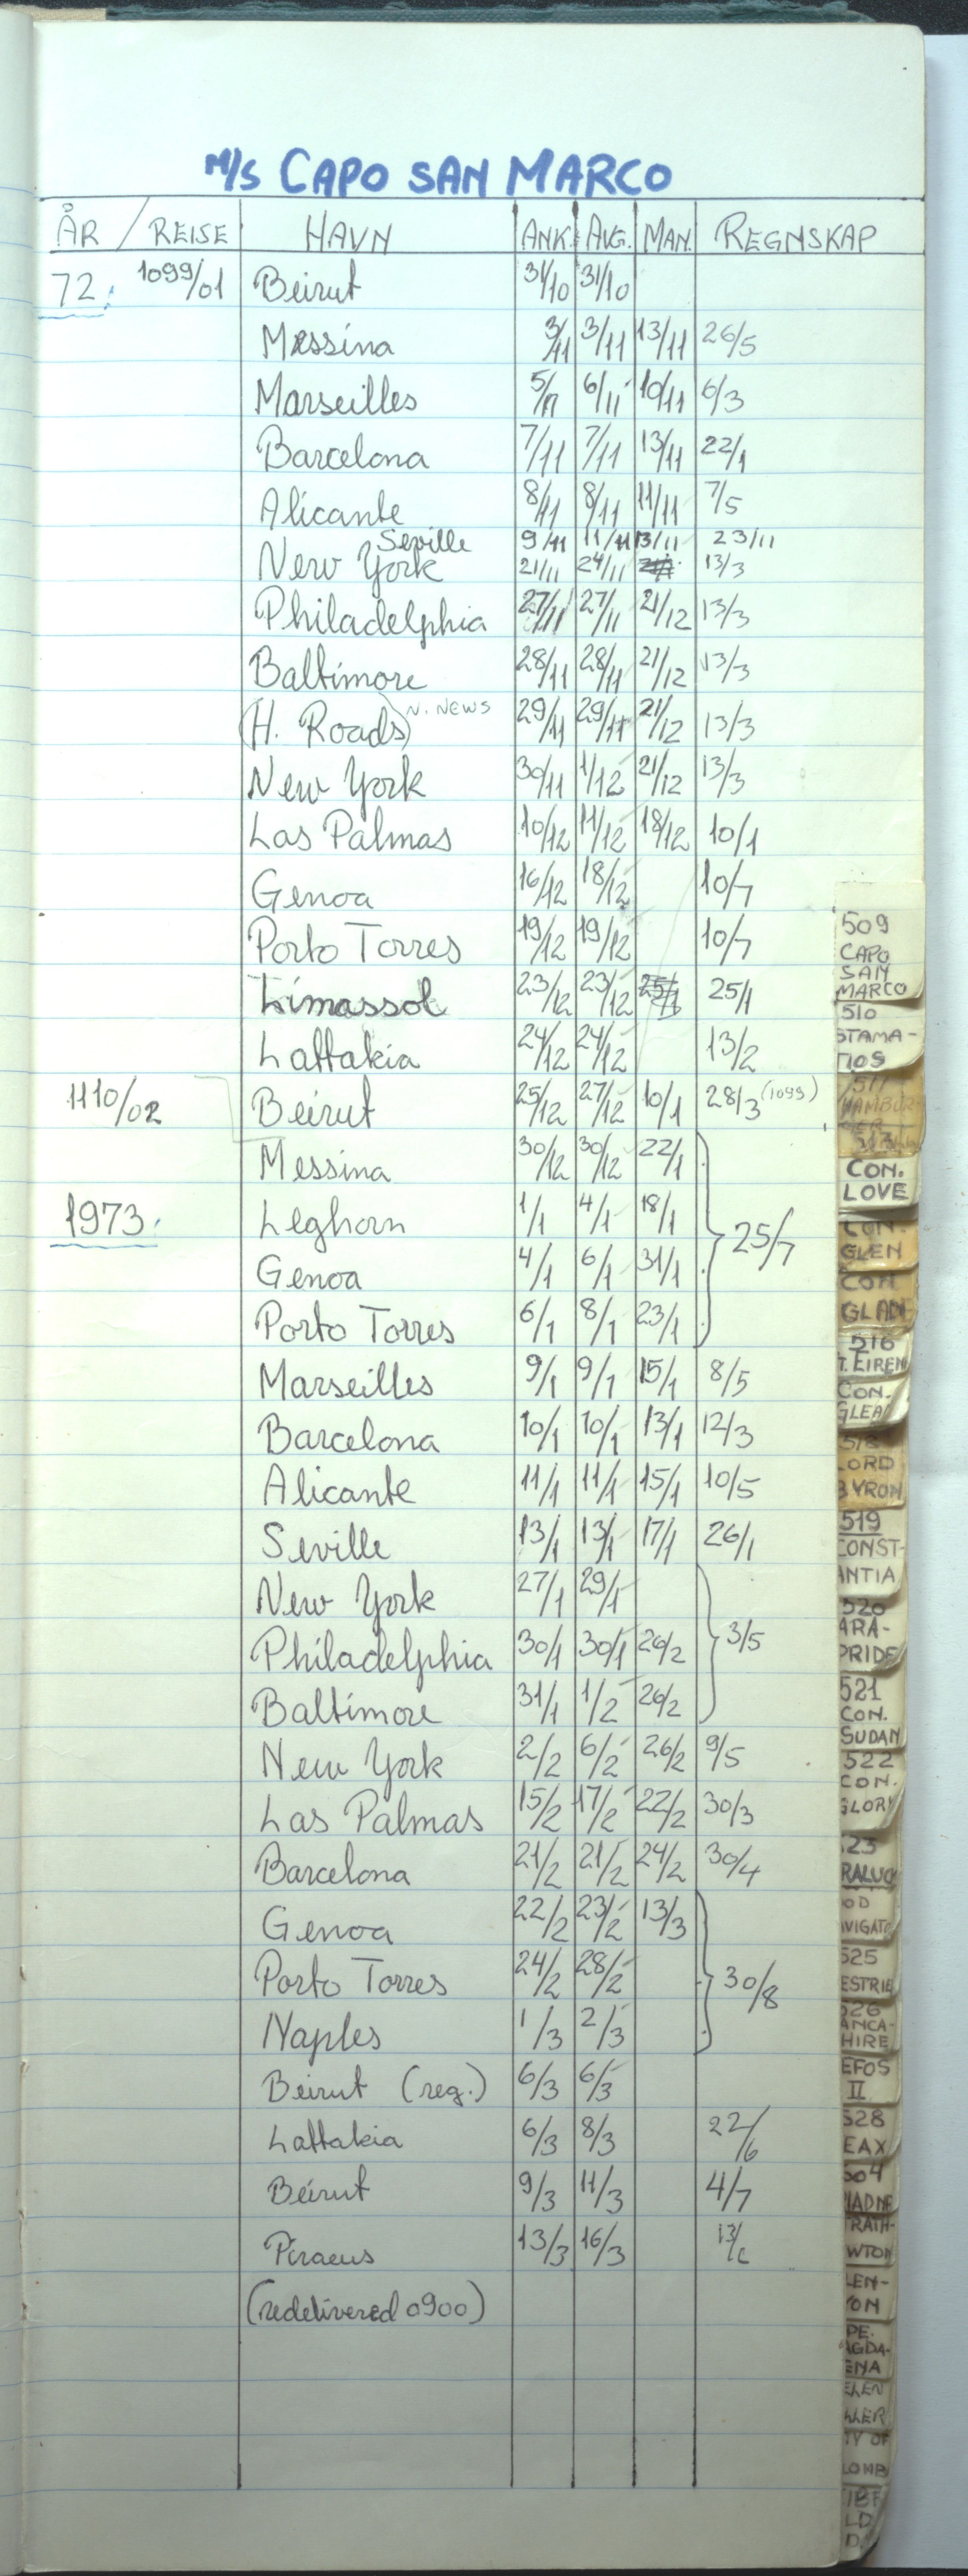 M/S CAPO SAN MARCO
ÅR / REISE HAVN ANK. AVG. MAN. REGNSKAP
72. 1099/01 Beirut 31/10 31/10
Messina 3/11 3/11 13/11 26/5
Marseilles 5/11 6/11 10/11 6/3
Barcelona 7/11 7/11 13/11 22/1
Alicante 8/11 8/11 11/11 7/5
Seville 9/11 11/11 13/11 23/11
New York 21/11 24/11 13/3
Philadelphia 27/11 27/11 21/12 13/3
Baltimore 28/11 28/11 21/12 13/3
(H. Roads) N. NEWS 29/11 29/11 21/12 13/3
New York 30/11 1/12 21/12 13/3
Las Palmas 10/12 11/12 18/12 10/1
Genoa 16/12 18/12 10/7
Porto Torres 19/12 19/12 10/7
Limassol 23/12 23/12 25/1 25/1
Lattakia 24/12 24/12 13/2
1110/02 Beirut 25/12 27/12 10/1 28/3 (1099)
Messina 30/12 30/12 22/1
1973. Leghorn 1/1 4/1 18/1 25/7
Genoa 4/1 6/1 31/1
Porto Torres 6/1 8/1 23/1
Marseilles 9/1 9/1 15/1 8/5
Barcelona 10/1 10/1 13/1 12/3
Alicante 11/1 11/1 15/1 10/5
Seville 13/1 13/1 17/1 26/1
New York 27/1 29/1
Philadelphia 30/1 30/1 26/2 3/5
Baltimore 31/1 1/2 26/2
New York 2/2 6/2 26/2 9/5
Las Palmas 15/2 17/2 22/2 30/3
Barcelona 21/2 21/2 24/2 30/4
Genoa 22/2 23/2 13/3
Porto Torres 24/2 28/2 30/8
Naples 1/3 2/3
Beirut (reg.) 6/3 6/3
Lattakia 6/3 8/3 22/6
Beirut 9/3 11/3 4/7
Piraeus 13/3 16/3 13/6
(redelivered 0900)
509
CAPO
SAN
MARCO
510
STAMA-
TIOS
511
HAMBUR
GER
513
CON.
LOVE
CON.
GLEN
CON
GLAN
516
T. EIREN
CON.
GLEA
518
LORD
BYRON
519
CONST-
ANTIA
520
ARA-
PRIDE
521
CON.
SUDAN
522
CON.
GLORY
523
RALUCK
OD
AVIGATO
525
ESTRIE
526
ANCA-
HIRE
EFOS
II
528
EAX
604
IADNE
TRATH-
WTON
LEN-
YON
PE.
AGDA-
ENA
ELEN
LLER
TY OF
LOMB
LD
D.